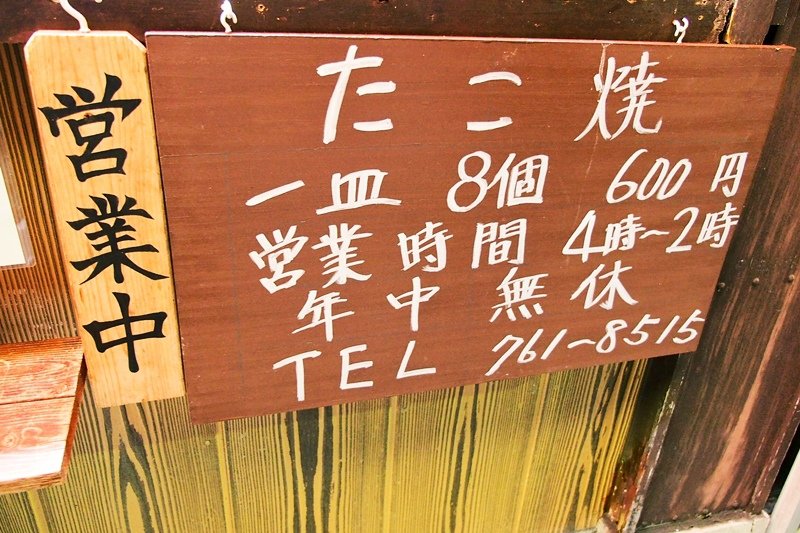 営業中
たこ焼
一皿 8個 600円
営業時間 4時~2時
年中無休
TEL 761-8515